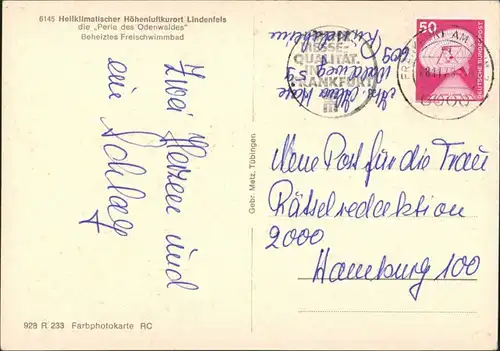 6145 Heilklimatischer Höhenluftkurort Lindenfels
die „Perle des Odenwaldes"
Beheiztes Freischwimmbad
Zwei Herzen und
ein Schlag
928 R 233 Farbphotokarte RC
Gebr. Metz, Tübingen
MESSE-
QUALITÄT.
FRANKFURT
50
DEUTSCHE BUNDESPOST
FRANKFURT AM
6000
609 Rüsselsheim
Neue Post für die Frau
Rätselredaktion
2000
Hamburg 100